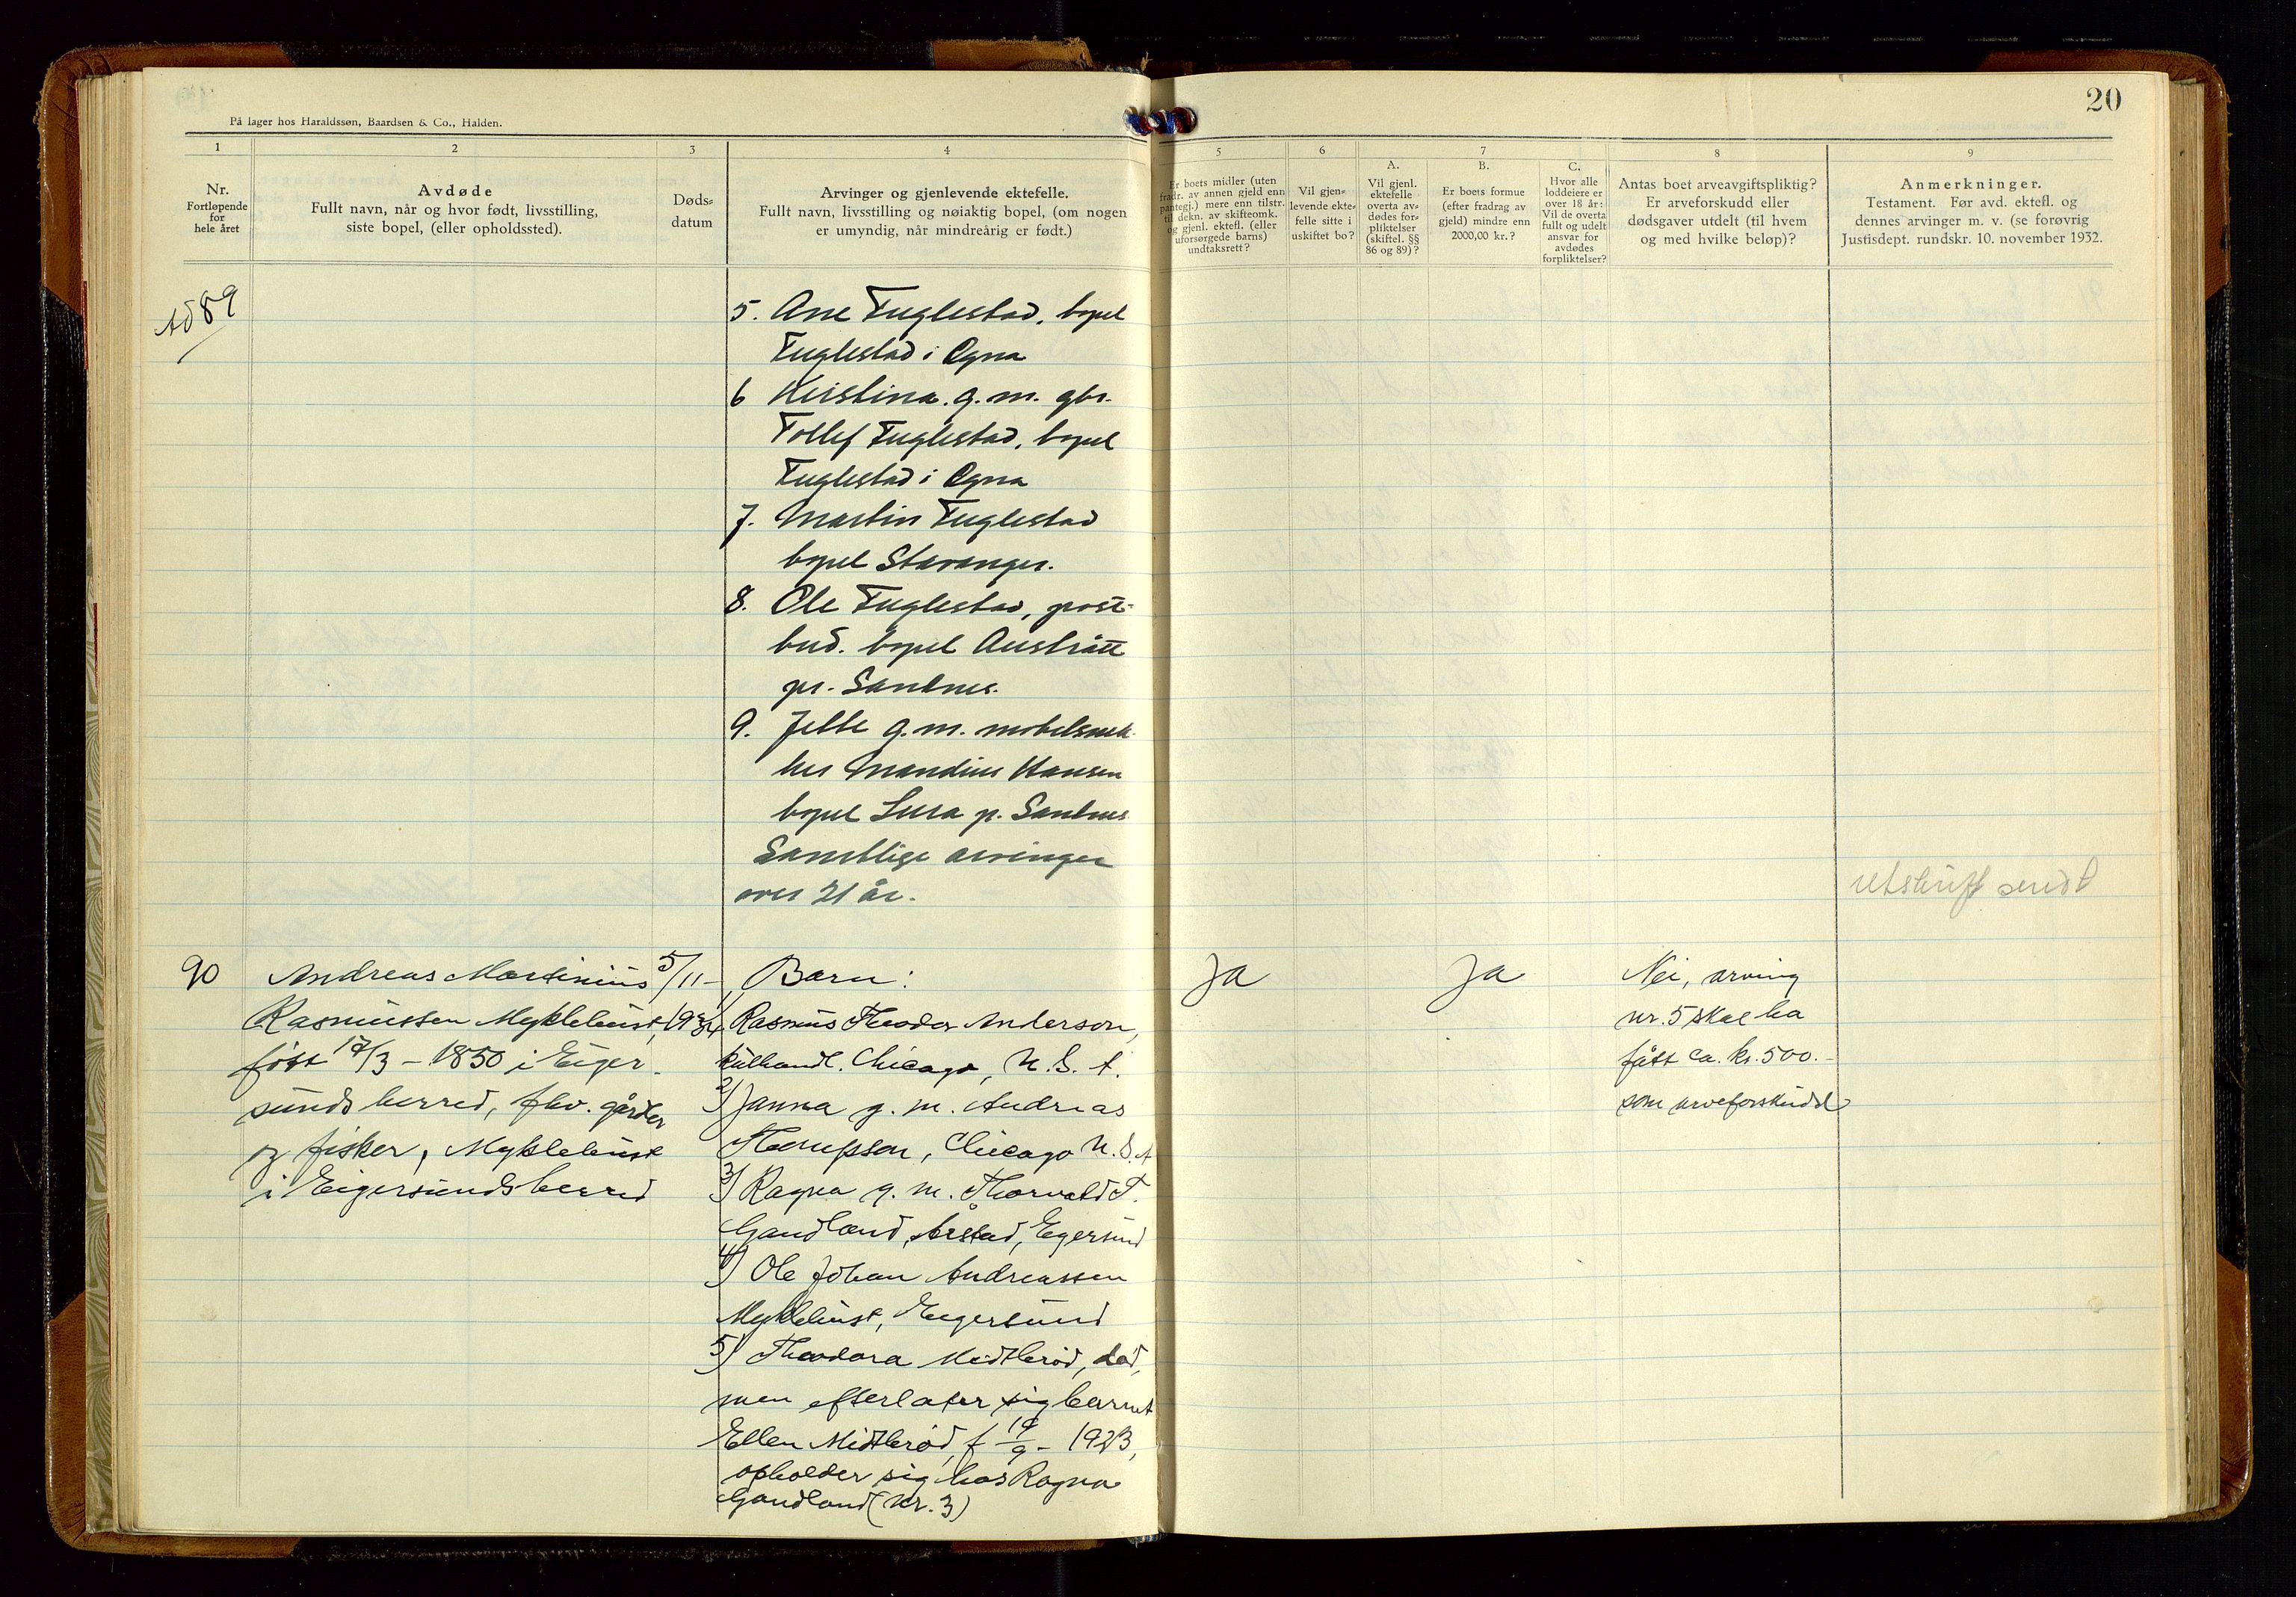 20
På lager hos Haraldssøn, Baardsen & Co., Halden.
1
2
3
4
5
6
7
8
9
Nr.
Fortløpende
for
hele året
Avdøde
Fullt navn, når og hvor født, livsstilling,
siste bopel, (eller opholdssted).
Døds-
datum
Arvinger og gjenlevende ektefelle.
Fullt navn, livsstilling og nøiaktig bopel, (om nogen
er umyndig, når mindreårig er født.)
Er boets midler (uten
fradr. av annen gjeld enn
pantegj.) mere enn tilstr.
til dekn. av skifteomk.
og gjenl. ektefl. (eller
uforsørgede barns)
undtaksrett?
Vil gjen-
levende ekte-
felle sitte i
uskiftet bo?
A.
Vil gjenl.
ektefelle
overta av-
dødes for-
pliktelser
(skiftel. §§
86 og 89)?
B.
Er boets formue
(efter fradrag av
gjeld) mindre enn
2000,00 kr.?
C.
Hvor alle
loddeiere er
over 18 år:
Vil de overta
fullt og udelt
ansvar for
avdødes
forpliktelser?
Antas boet arveavgiftspliktig?
Er arveforskudd eller
dødsgaver utdelt (til hvem
og med hvilke beløp)?
Anmerkninger.
Testament. Før avd. ektefl. og
dennes arvinger m. v. (se forøvrig
Justisdept. rundskr. 10. november 1932.
Ad 89
5. Ane Fuglestad, bopel
Fuglestad i Ogna
6 Kristina. g. m. gbr.
Tollef Fuglestad, bopel
Fuglestad i Ogna
7. Martin Fuglestad
bopel Stavanger.
8. Ole Fuglestad, post-
bud. bopel Austrått
pr. Sandnes.
9. Jette g.m. møbelsnek-
ker Mandius Hansen
bopel Lura p. Sandnes
Samtlige arvinger
over 21 år.
utskrift sendt
90
Andreas Martinius
Rasmussen Myklebust,
født 17/3 - 1850 i Eiger-
sunds herred, fhv. gårdbr
og fisker, Myklebust
i Eigersunds herred
5/11 -
1934
Barn:
1) Rasmus Theodor Anderson,
kullhandl. Chicago, U. S. A.
2) Janna g. m. Andreas
Thompson, Chicago U. S. A
3) Ragna g. m. Thorvald T.
Gandland, Årstad, Egersund
4) Ole Johan Andreassen
Myklebust, Eigersund
5) Theodora Midtbrød, død,
men efterlater sig barnet
Ellen Midtbrød, f 19/9 - 1923,
opholder sig hos Ragna
Gandland (Nr. 3)
Ja
Ja
Nei, arving
nr. 5 skal ha
fått ca. kr. 500.-
som arveforskudd